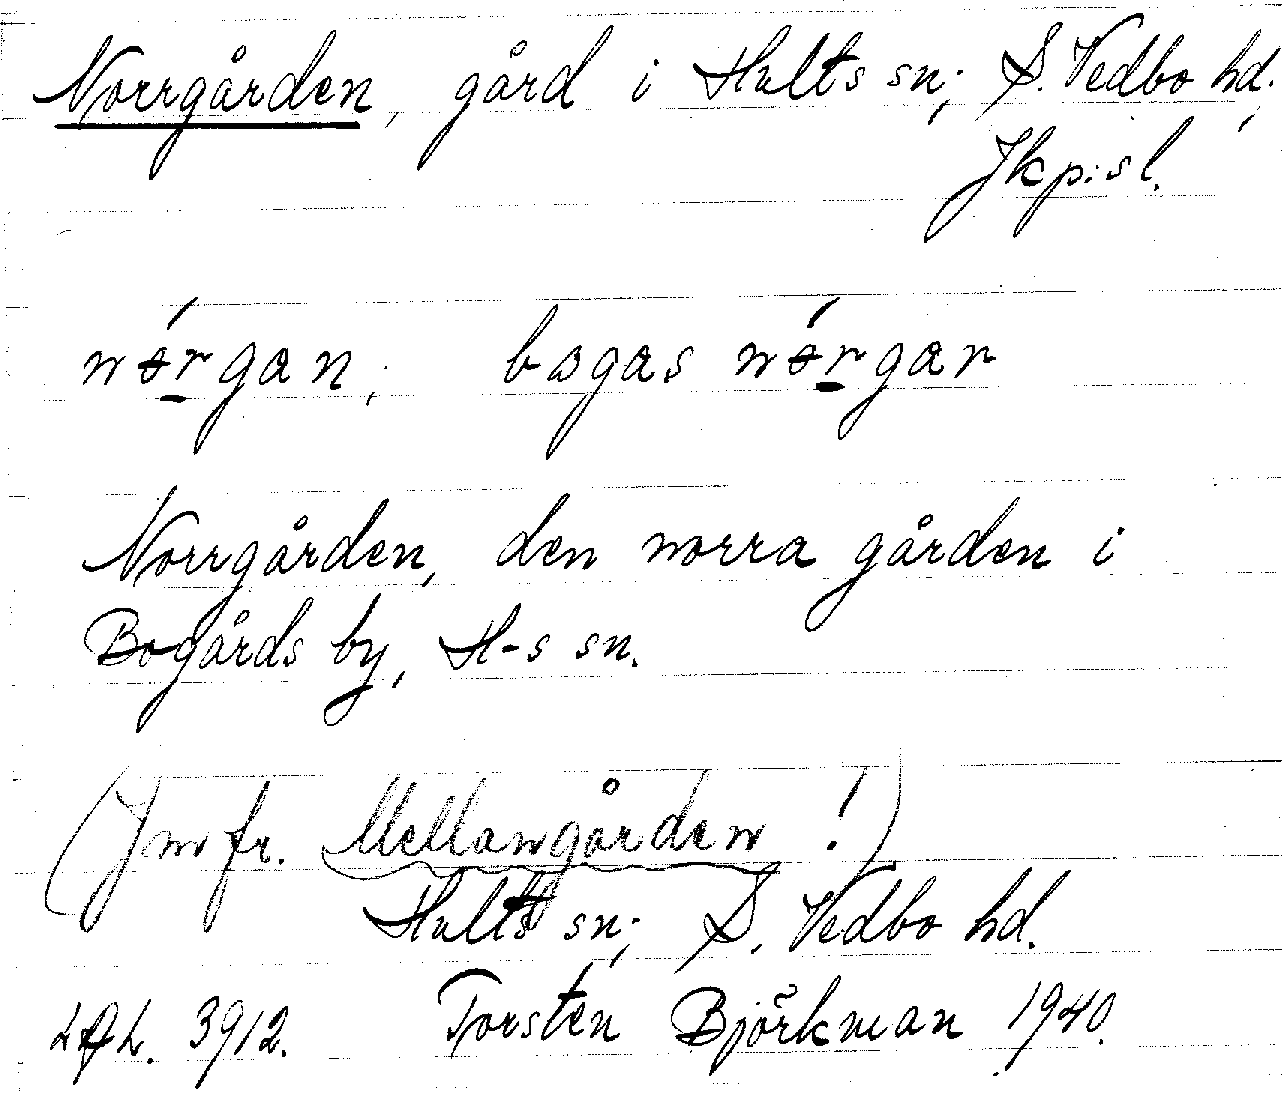 Norrgården, gård i Hults sn; S. Vedbo hd.,
Jkp:s l.
Norrgården, den norra gården i
Bogårds by, H-s sn.
(Jmfr. Mellangården!)
Hults sn; S. Vedbo hd.
3912. Torsten Björkman 1940.